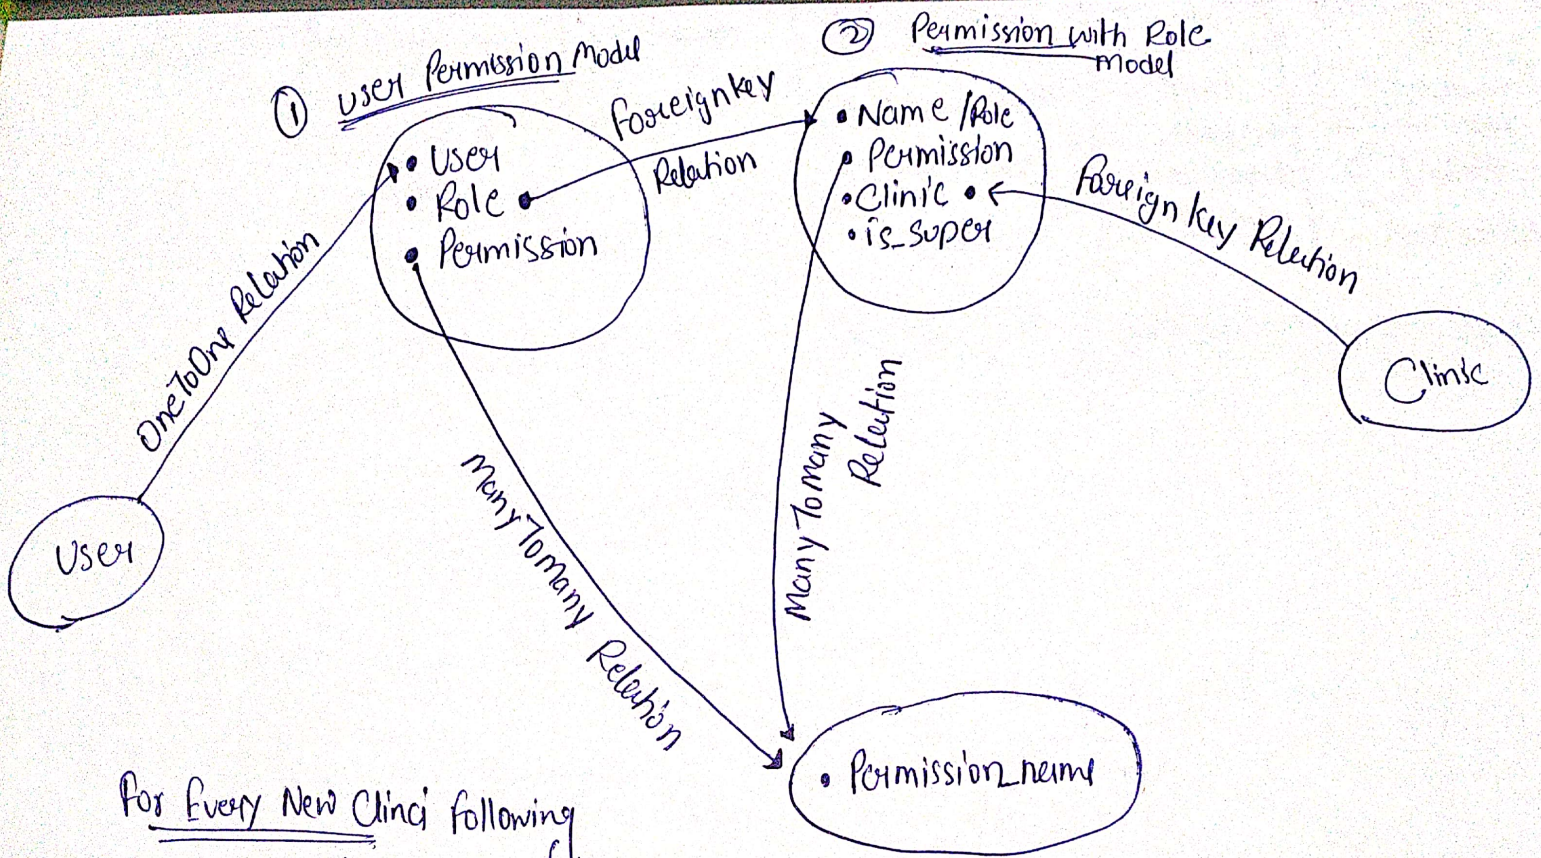 ① User Permission Model
• User
• Role •
• Permission
Foreignkey
Relation
② Permission with Role
Model
• Name /Role
• Permission
• Clinic •
• is_super
Foreign key Relation
Clinic
OneToOne Relation
User
ManyToMany Relation
ManyTomany
Relation
• Permission_name
For Every New Clinci following